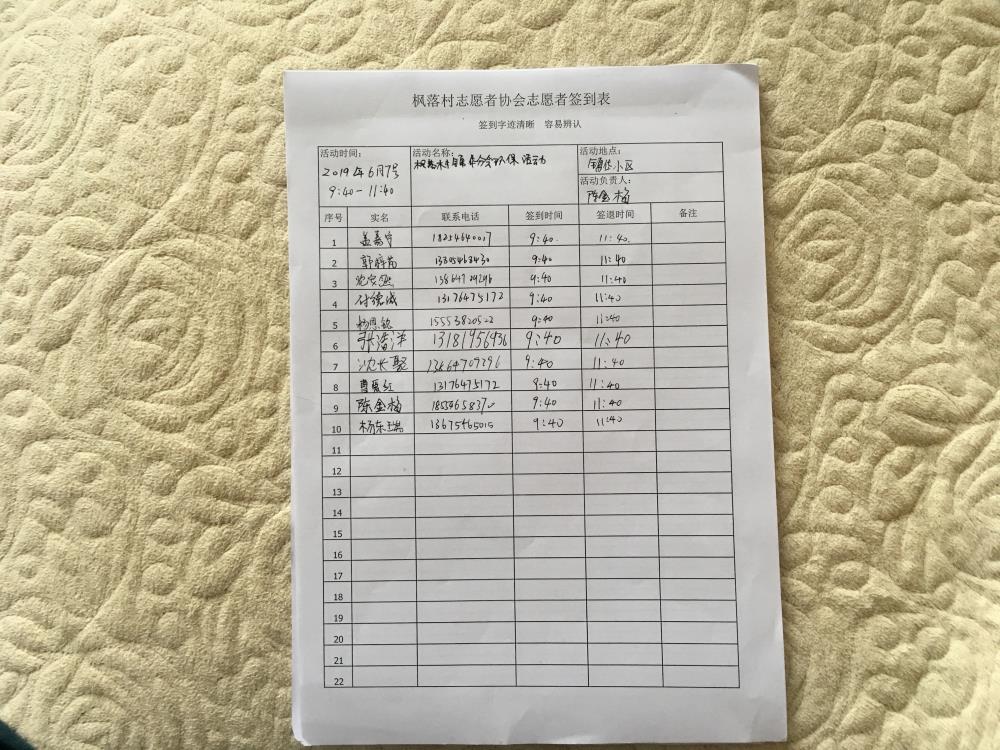 枫落村志愿者协会志愿者签到表
签到字迹清晰 容易辨认
活动时间: 活动名称: 活动地点:
2019年6月7号 环保 活动 小区
9:40-11:40 活动负责人:
陈金梅
序号 实名 联系电话 签到时间 签退时间 备注
1 18254640017 9:40. 11:40.
2 郭梓茜 13305463430 9:40 11:40
3 9:40 11:40
4 付德成 13176475172 9:40 11:40
5 杨恩铭 15553820522 9:40 11:40
6 张浩洋 13181956936 9:40 11:40
7 沈长聚 13864709296 9:40 11:40
8 曹爱红 13176475172 9:40 11:40
9 陈金梅 9:40 11:40
10 杨东瑞 13675465015 9:40 11:40
11
12
13
14
15
16
17
18
19
20
21
22